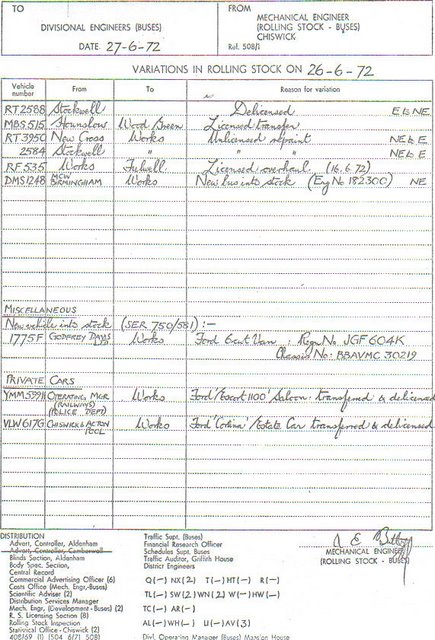 TO
DIVISIONAL ENGINEERS (BUSES)
DATE 27-6-72
FROM
MECHANICAL ENGINEER
(ROLLING STOCK - BUSES)
CHISWICK
Ref. 508/1
VARIATIONS IN ROLLING STOCK ON 26-6-72
Vehicle number From To Reason for variation
RT2588 Stockwell Delicensed E&NE
MBS515 Hounslow Wood Green Licensed transfer
RT3950 New Cross Works Unlicensed repaint NE&E
2584 Stockwell " " " NE&E
RF535 Works Fulwell Licensed overhaul. (16.6.72)
DMS1248 MCW BIRMINGHAM Works New bus into stock (Eng No 182300) NE
MISCELLANEOUS
New vehicle into stock (SER 750/581) :-
1775F GODFREY DAVIS LTD Works Ford 6cwt Van : Regn No JGF 604K
Chassis No: BBAVMC 30219
PRIVATE CARS
OPERATING MGR (RAILWAYS) (POLICE DEPT) Works Ford 'Escort 1100' Saloon: transferred & delicensed
VLW617G CHISWICK & ACTON POOL Works Ford 'Cortina' Estate Car transferred & delicensed
DISTRIBUTION
Advert. Controller, Aldenham
Advert. Controller, Camberwell
Blinds Section, Aldenham
Body Spec. Section,
Central Record
Commercial Advertising Officer (6)
Costs Office (Mech. Engr.-Buses)
Scientific Adviser (2)
Distribution Services Manager
Mech. Engr. (Development - Buses) (2)
R. S. Licensing Section (8)
Rolling Stock Inspection
Statistical Office - Chiswick (2)
408/169 (1) (504 617) 508
Traffic Supt. (Buses)
Financial Research Officer
Schedules Supt. Buses
Traffic Auditor, Griffith House
District Engineers
Q(-) NX(2) T(-) HT(-) R(-)
TL(-) SW(2) WN(2) W(-) HW(-)
TC(-) AR(-)
AL(-) WH(-) U(-) AV(3)
Divl. Operating Manager (Buses) Mansion House
MECHANICAL ENGINEER
(ROLLING STOCK - BUSES)